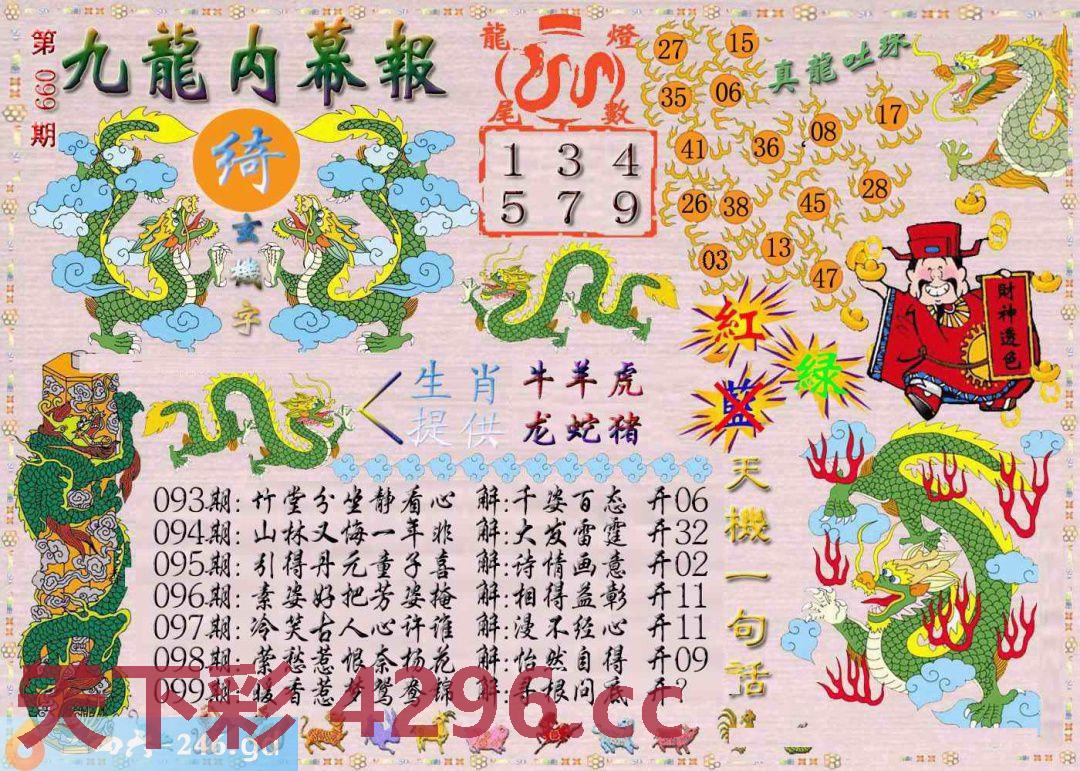 第099期
九龍内幕報
綺
玄機字
龍燈
尾數
1 3 4
5 7 9
27 15
35 06
41 36 08 17
26 38 45 28
03 13 47
真龍吐珠
紅
藍
绿
財神透色
生肖 牛羊虎
提供 龙蛇猪
天機一句話
093期: 竹堂分坐静看心 解:千姿百态 开06
094期: 山林又悔一年非 解:大发雷霆 开32
095期: 引得丹元童子喜 解:诗情画意 开02
096期: 素姿好把芳姿掩 解:相得益彰 开11
097期: 冷笑古人心许谁 解:漫不经心 开11
098期: 萦愁惹恨奈杨花 解:怡然自得 开09
099期: 香惹梦鸳鸯锦 解:寻根问底 开?
天下彩 4296.cc
246.gd